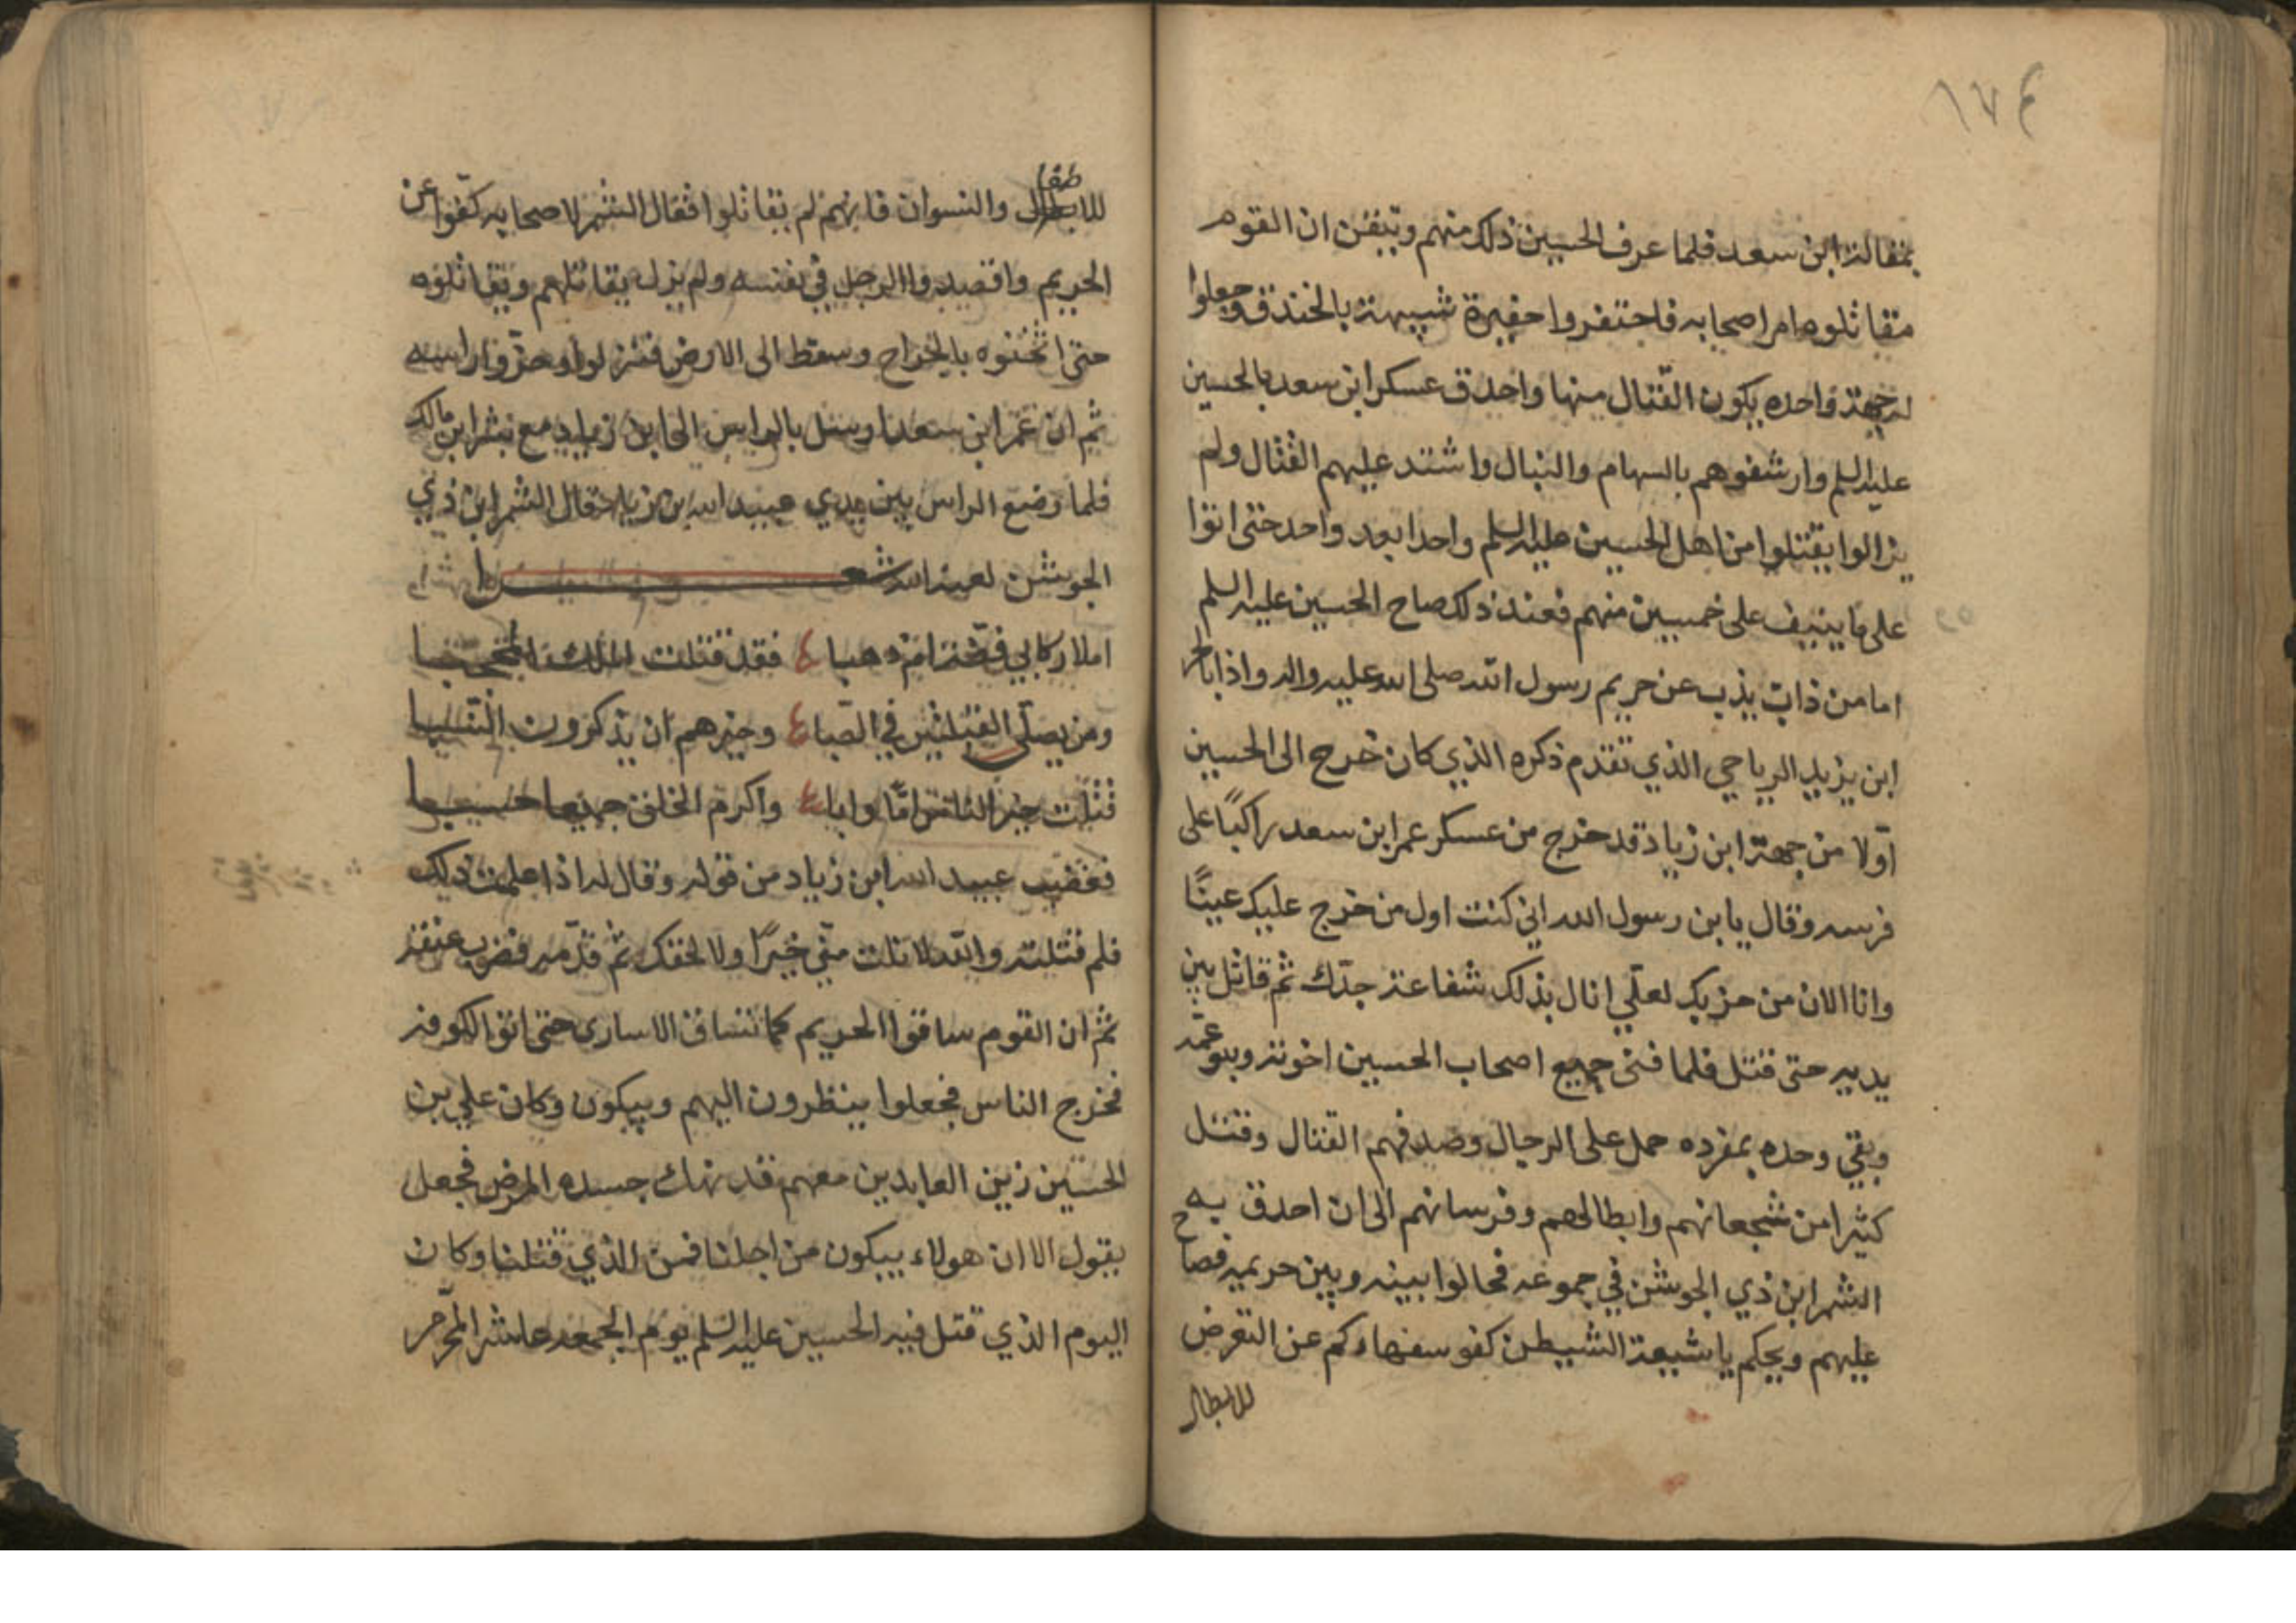 ١٧٤
بمقالة ابن سعد فلما عرف الحسين ذلك منهم وتيقن ان القوم
مقاتلوه امر اصحابه فاحتفروا حفيرة شبيهة بالخندق وجعلوا
لها جهة واحده يكون القتال منها واحدق عسكر ابن سعد بالحسين
عليه السلم وارشقوهم بالسهام والنبال واشتد عليهم القتال ولم
يزالوا يقتلوا من اهل الحسين عليه السلم واحدا بعد واحد حتى اتوا
على ما ينيف على خمسين منهم فعند ذلك صاح الحسين عليه السلم
اما من ذاب يذب عن حريم رسول الله صلى الله عليه واله واذا بالحر
ابن يزيد الرياحي الذي تقدم ذكره الذي كان خرج الى الحسين
اولا من جهة ابن زياد قد خرج من عسكر عمر ابن سعد راكبًا على
فرسه وقال يابن رسول الله اني كنت اول من خرج عليك عينًا
وانا الان من حزبك لعلّي انال بذلك شفاعة جدّك ثم قاتل بين
يديه حتى قتل فلما فنى جميع اصحاب الحسين اخوته وبنو عمّه
وبقي وحده بمفرده حمل على الرجال وصدفهم القتال وقتل
كثيرا من شجعانهم وابطالهم وفرسانهم الى ان احدق به
الشمر ابن ذي الجوشن في جموعه فحالوا بينه وبين حريمه فصاح
عليهم ويحكم يا شيعة الشيطن كفو سفهاءكم عن التعرض
للابطال
للاطفال والنسوان فانهم لم يقاتلوا فقال الشمر لاصحابه كفّوا عن
الحريم واقصدوا الرجل في نفسه ولم يزل يقاتلهم ويقاتلوه
حتى اثخنوه بالجراح وسقط الى الارض فنزلوا وحزّوا راسه
ثم ان عمر ابن سعد ارسل بالراس الى ابن زياد مع بشر ابن مالك
فلما وضع الراس بين يدي عبيد الله بن زياد قال الشمر ابن ذي
الجوشن لعبيد الله شعر
املا ركابي فضة ام ذهبا فقد قتلت الملك المحجبا
ومن يصلّي القبلتين في الصبا وخيرهم ان يذكرون النسبا
قتلت خير الناس امّا وابا واكرم الخلق جميعا حسبا
فغضب عبيد الله ابن زياد من قوله وقال له اذا علمت ذلك
فلم قتلته والله لا نلت منّي خيرًا ولا لحقنك ثم قدّمه فضرب عنقه
ثم ان القوم ساقوا الحريم كما تساق الاسارى حتى اتوا الكوفة
فخرج الناس فجعلوا ينظرون اليهم ويبكون وكان علي بن
الحسين زين العابدين معهم قد نهك جسده المرض فجعل
يقول الا ان هولاء يبكون من اجلنا فمن الذي قتلنا وكان
اليوم الذي قتل فيه الحسين عليه السلم يوم الجمعه عاشر المحّرم